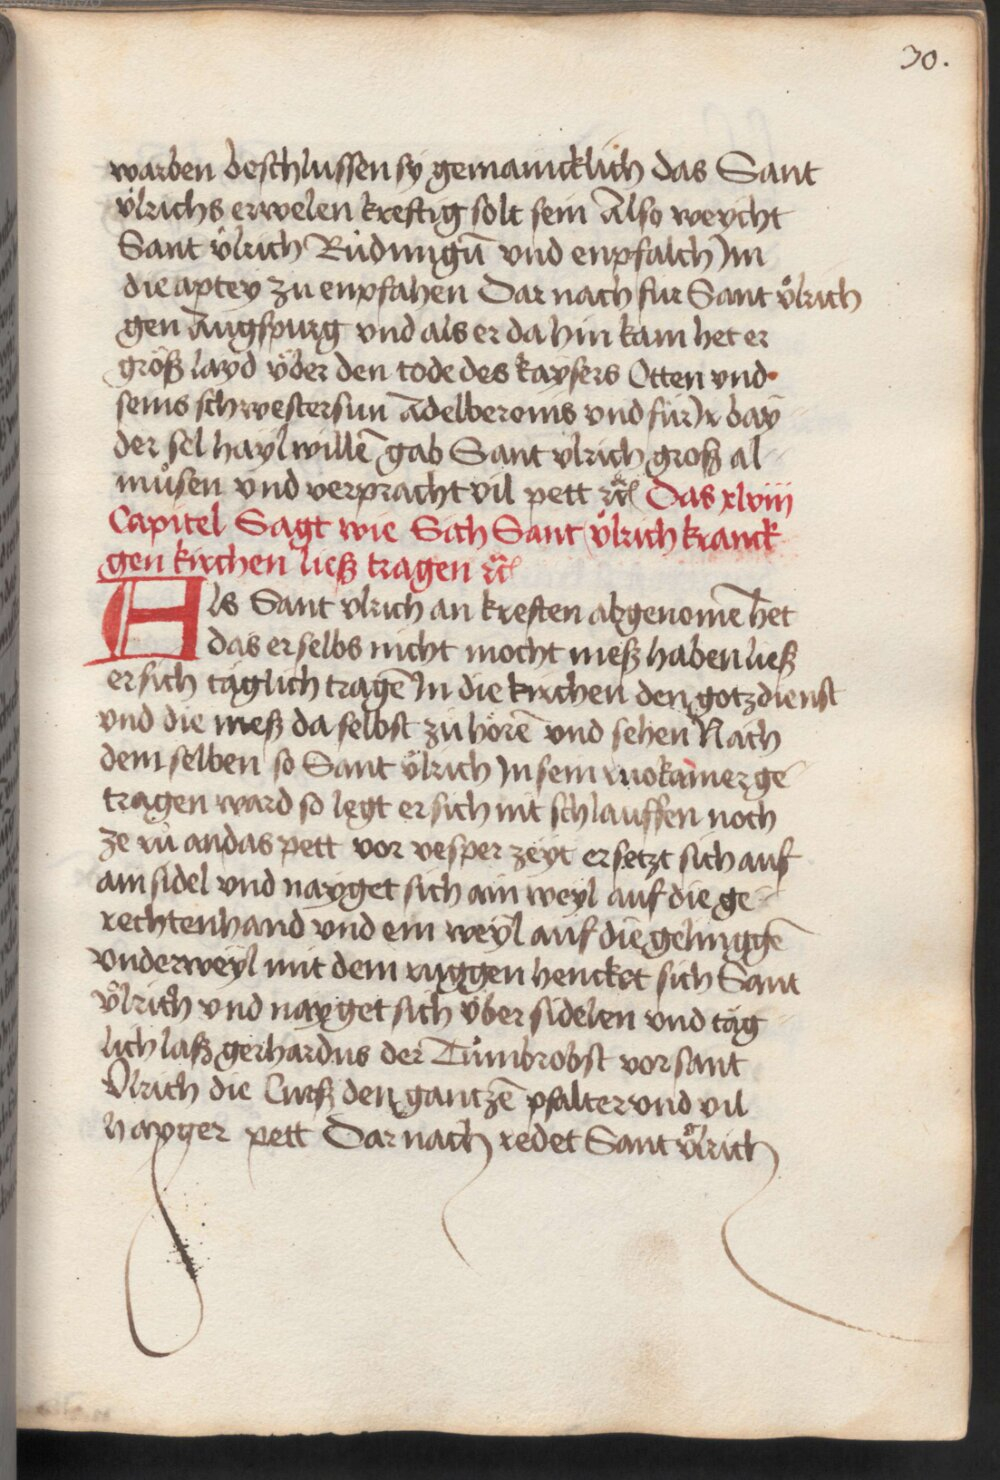 30.
warben beschlussen sy gemainicklich das Sant
v̊lrichs erwelen kreftig solt sein Also weycht
Sant v̊lrich Rüdungū vnd enpfalch Im
die aptey zu enpfahen Dar nach für Sant v̊lrich
gen Augspurg vnd als er da hin kam het er
groß layd vber den tode des kaysers Otten vnd
seins schwestersun Adelberonis vnd für Ir bay
der sel hayl willē gab Sant vlrich groß al
mu̇sen vnd verpracht vil pett ꝛc̄ Das xlviii
Capitel Sagt wie Sich Sant v̊lrich kranck
gen kirchen ließ tragen ꝛc̄
Als Sant vlrich an kreften abgenomē het
das er selbs nicht mocht meß haben ließ
er sich täglich tragē In die kirchen den gotzdienst
vnd die meß da selbst zu hörē vnd sehen Nach
dem selben so Sant v̊lrich In sein ruokamer ge
tragen ward so legt er sich nit schlauffen noch
ze ru̇ an das pett vor vesper zeyt er setzt sich auf
ain sidel vnd nayget sich ain weyl auf die ge
rechtenhand vnd ein weyl auf die gelinggē
vnderweyl mit dem ruggen hencket sich Sant
v̊lrich vnd nayget sich vber sidelen vnd täg
lich laß gerhardus der Tůmbrobst vor sant
Vlrich die Curß den gantzē psalter vnd vil
hayger pett Dar nach redet Sant v̊lrich